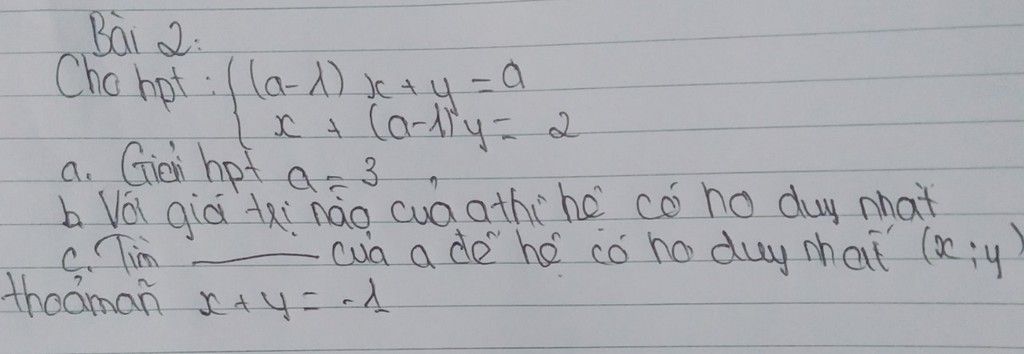 Bài 2:
Cho hpt: { (a-1) x + y = a
x + (a-1) y = 2
a. Giải hpt a = 3
b. Với giá trị nào của a thì hê có no duy nhất
c. Tìm ——— của a để hê có no duy nhất (x; y)
thoả mãn x + y = -1